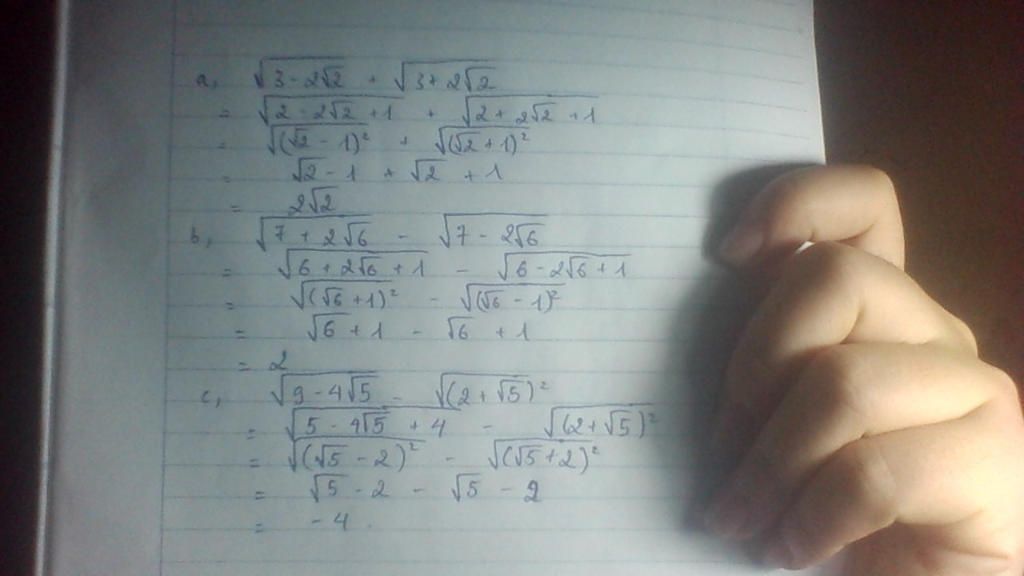 a, √(3 - 2√2) + √(3 + 2√2)
= √(2 - 2√2 + 1) + √(2 + 2√2 + 1)
= √((√2 - 1)²) + √((√2 + 1)²)
= √2 - 1 + √2 + 1
= 2√2
b, √(7 + 2√6) - √(7 - 2√6)
= √(6 + 2√6 + 1) - √(6 - 2√6 + 1)
= √((√6 + 1)²) - √((√6 - 1)²)
= √6 + 1 - √6 + 1
= 2
c, √(9 - 4√5) - √((2 + √5)²)
= √(5 - 4√5 + 4) - √((2 + √5)²)
= √((√5 - 2)²) - √((√5 + 2)²)
= √5 - 2 - √5 - 2
= -4.